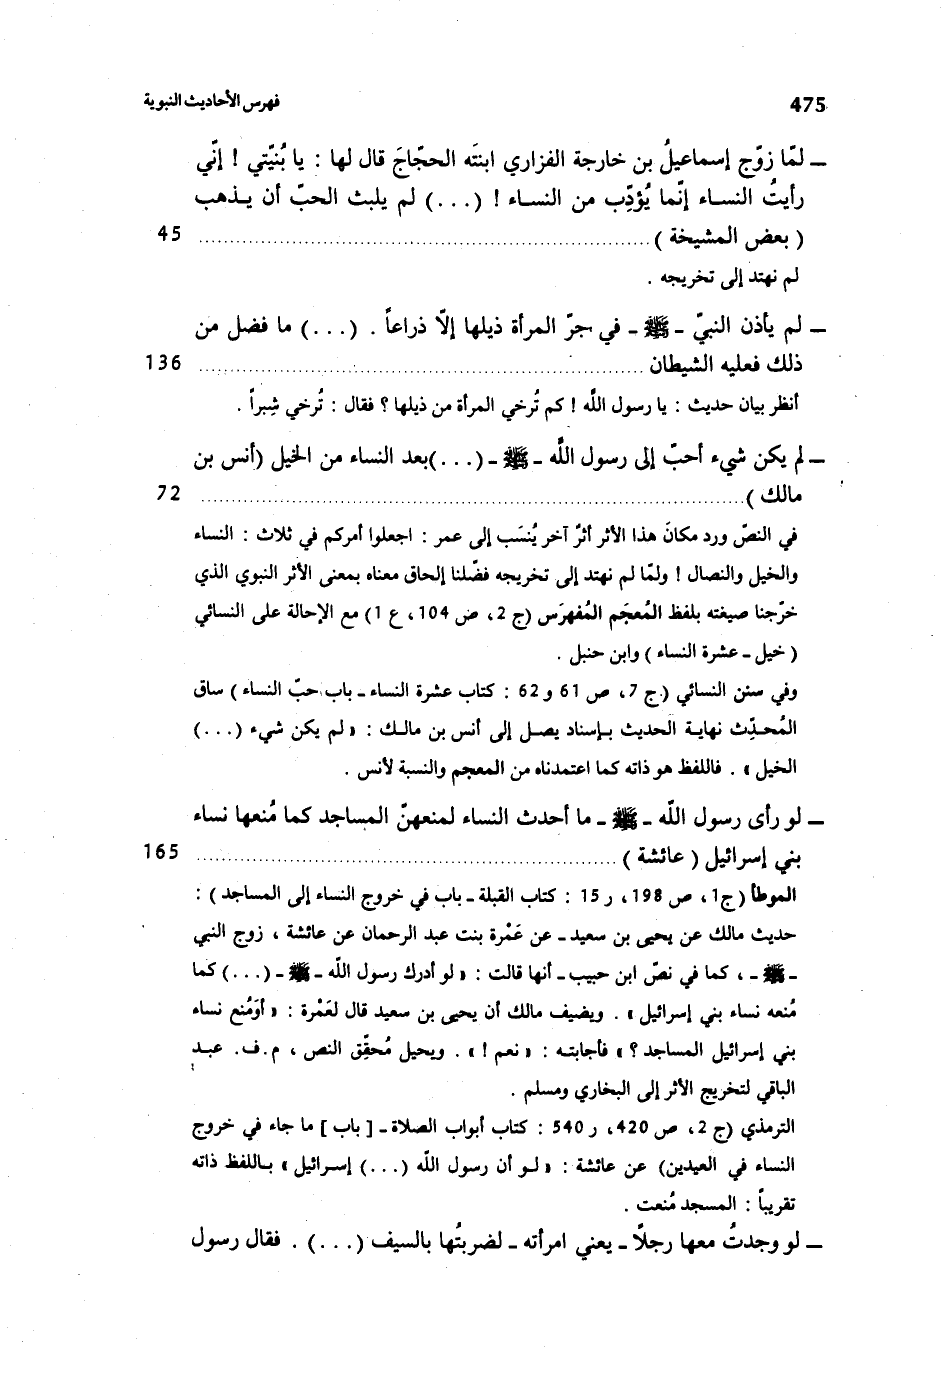 475
فهرس الأحاديث النبوية
ـ لمّا زوّج إسماعيلُ بن خارجة الفزاري ابنتَه الحجّاجَ قال لها : يا بُنيّتي ! إنّي
رأيتُ النساء إنّما يُؤدِّب من النساء ! (...) لم يلبث الحبّ أن يذهب
( بعض المشيخة ) ........ 45
لم نهتد إلى تخريجه .
ـ لم يأذن النبيّ ـ ﷺ ـ في جرّ المرأة ذيلها إلّا ذراعاً . (...) ما فضل من
ذلك فعليه الشيطان ........ 136
أنظر بيان حديث : يا رسول اللّه ! كم تُرخي المرأة من ذيلها ؟ فقال : تُرخي شِبراً .
ـ لم يكن شيء أحبّ إلى رسول اللّه ـ ﷺ ـ (...)بعد النساء من الخيل (أنس بن
مالك ) ........ 72
في النصّ ورد مكانَ هذا الأثر أثرٌ آخر يُنسَب إلى عمر : اجعلوا أمركم في ثلاث : النساء
والخيل والنصال ! ولمّا لم نهتد إلى تخريجه فضّلنا إلحاق معناه بمعنى الأثر النبوي الذي
خرّجنا صيغته بلفظ المُعجَم المُفهرَس (ج 2، ص 104، ع 1) مع الإحالة على النسائي
( خيل ـ عشرة النساء ) وابن حنبل .
وفي سنن النسائي (ج 7، ص 61 و 62 : كتاب عشرة النساء ـ باب حبّ النساء ) ساق
المُحدِّث نهاية الحديث بإسناد يصل إلى أنس بن مالك : « لم يكن شيء (...)
الخيل » . فاللفظ هو ذاته كما اعتمدناه من المعجم والنسبة لأنس .
ـ لو رأى رسول اللّه ـ ﷺ ـ ما أحدث النساء لمنعهنّ المساجد كما مُنعها نساء
بني إسرائيل ( عائشة ) ........ 165
الموطأ (ج1، ص 198، ر 15 : كتاب القبلة ـ باب في خروج النساء إلى المساجد ) :
حديث مالك عن يحيى بن سعيد ـ عن عَمْرة بنت عبد الرحمان عن عائشة ، زوج النبي
ـ ﷺ ـ ، كما في نصّ ابن حبيب ـ أنها قالت : « لو أدرك رسول اللّه ـ ﷺ ـ (...) كما
مُنعه نساء بني إسرائيل » . ويضيف مالك أن يحيى بن سعيد قال لعَمْرة : « أوَمُنع نساء
بني إسرائيل المساجد ؟ » فأجابته : « نعم ! » . ويحيل مُحقِّق النص ، م.ف. عبد
الباقي لتخريج الأثر إلى البخاري ومسلم .
الترمذي (ج 2، ص 420، ر 540 : كتاب أبواب الصلاة ـ [ باب ] ما جاء في خروج
النساء في العيدين) عن عائشة : « لو أن رسول اللّه (...) إسرائيل » باللفظ ذاته
تقريباً : المسجد مُنعت .
ـ لو وجدتُ معها رجلاً ـ يعني امرأته ـ لضربتُها بالسيف (...) . فقال رسول